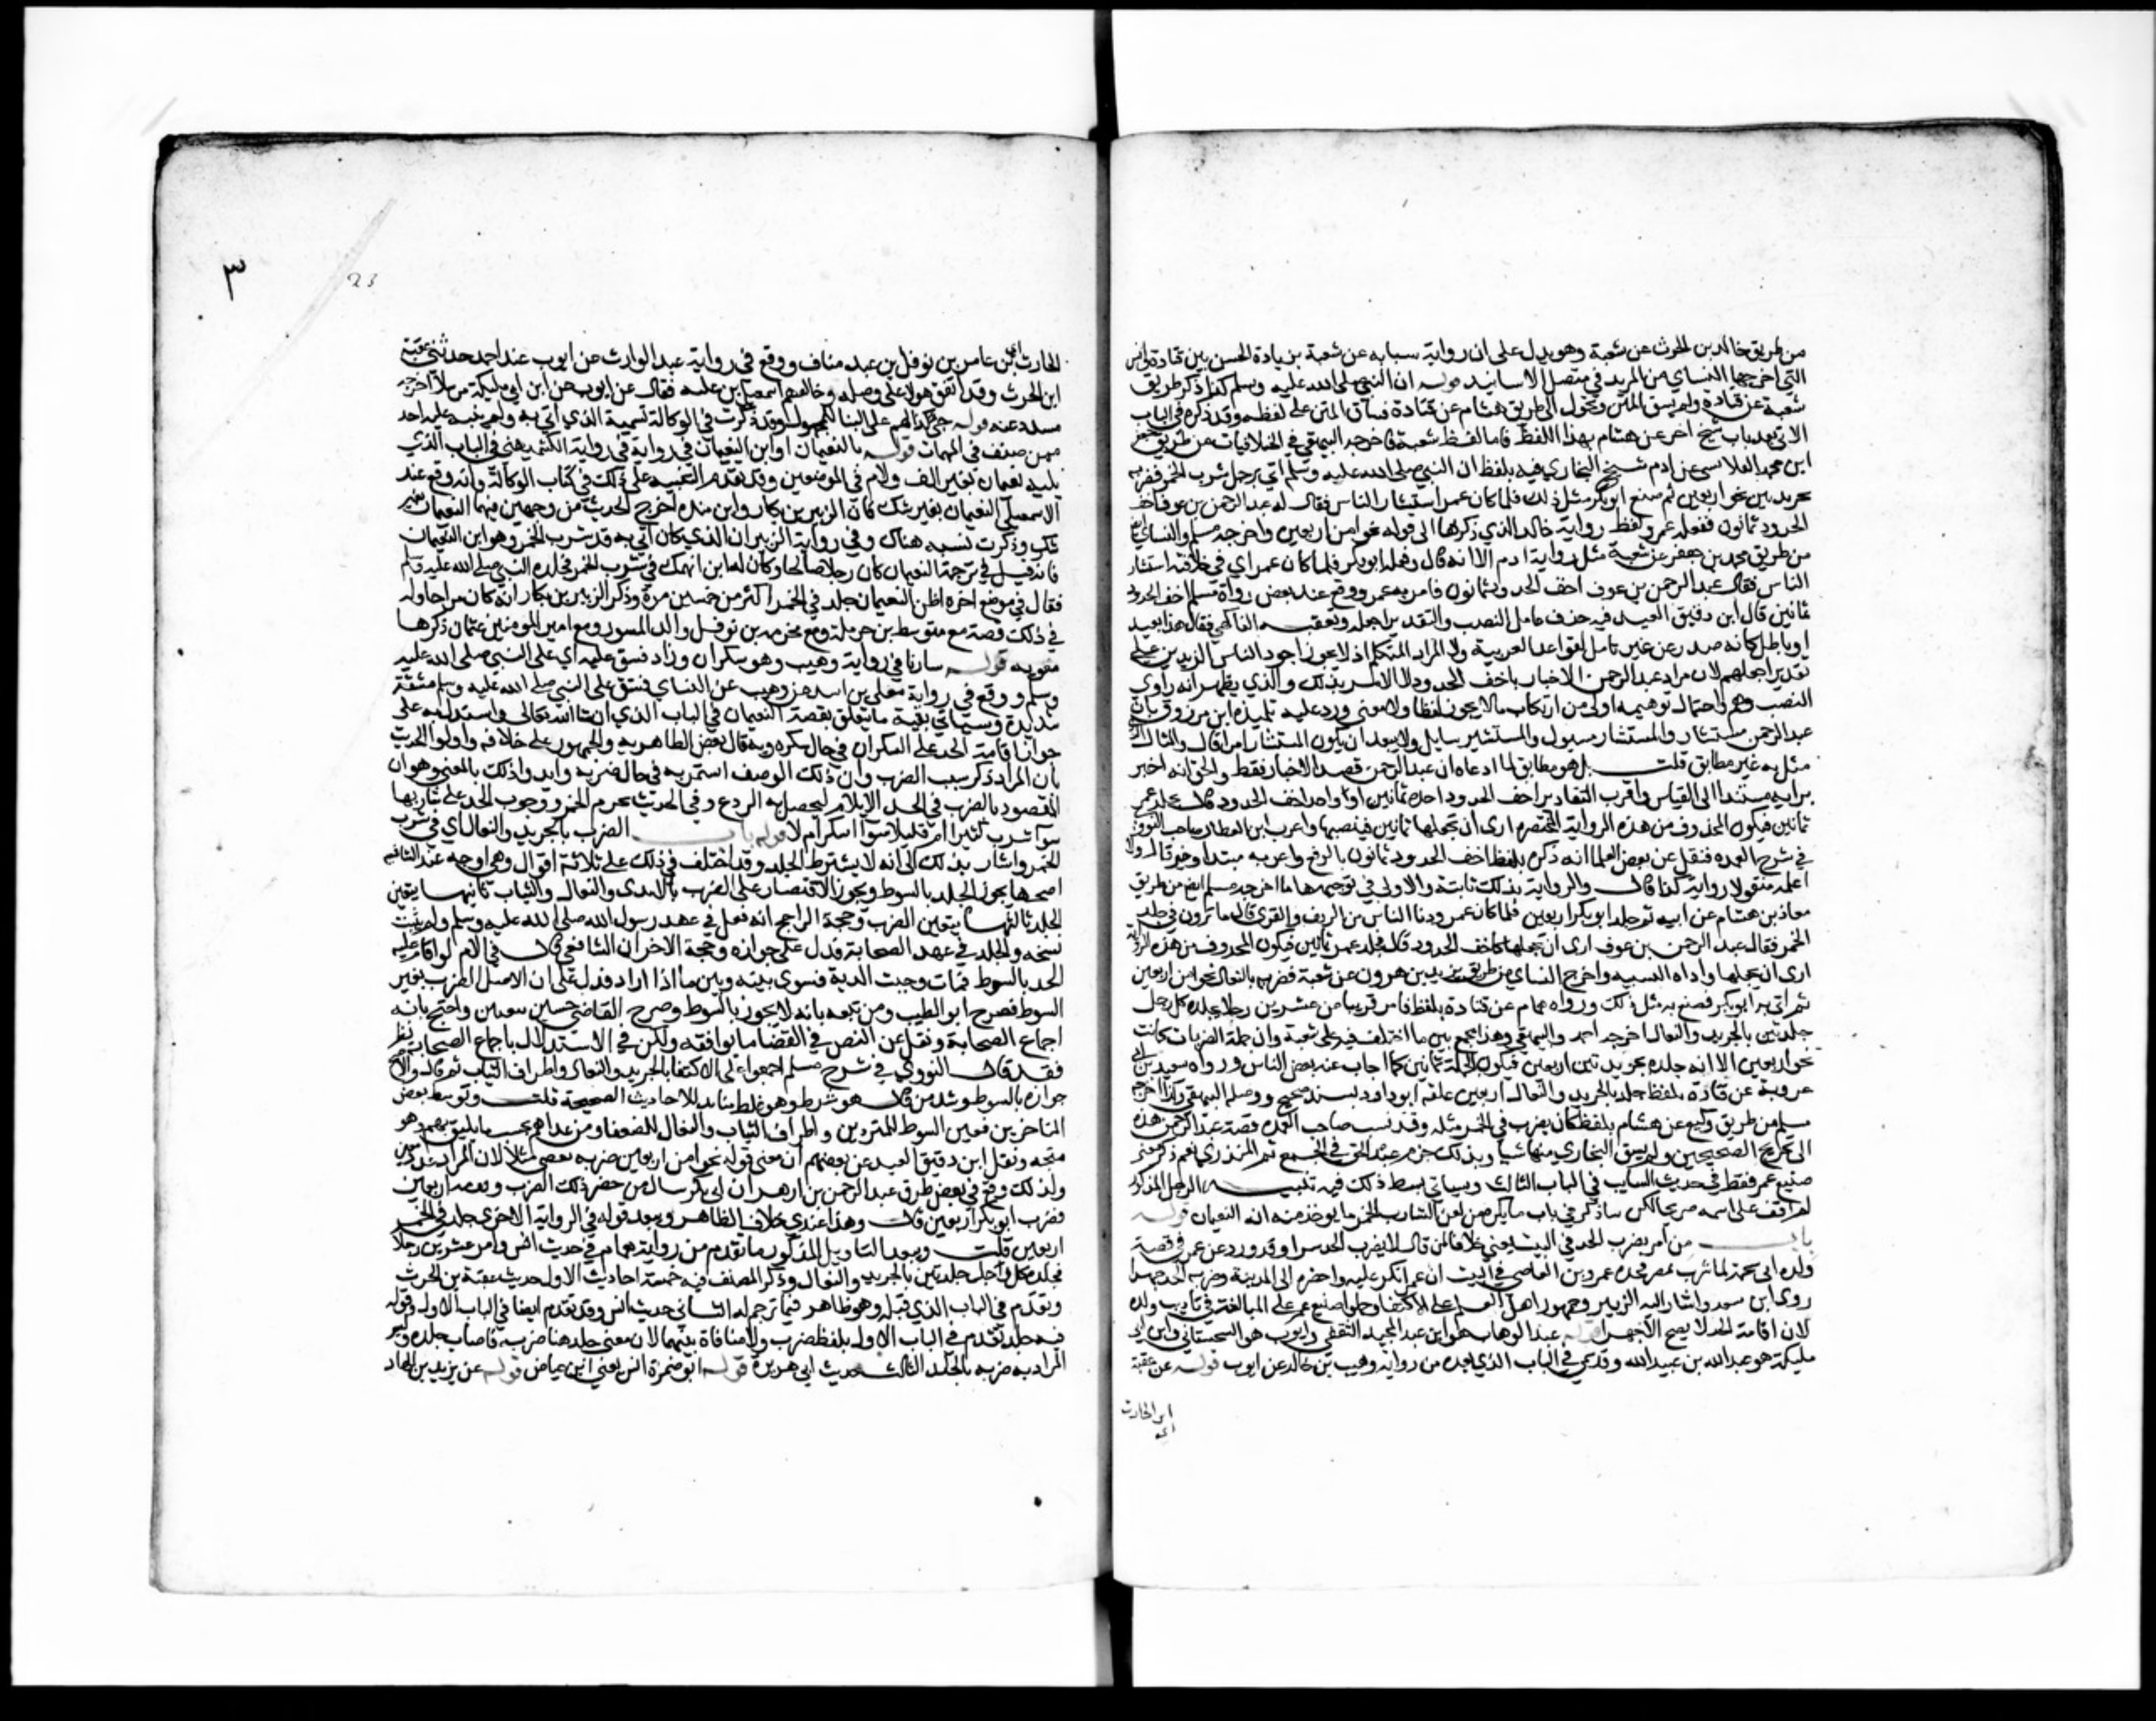 من طريق خالد بن الحرث عن شعبة وهو يدل على ان رواية شبابه عن شعبة بزيادة الحسن بين قتادة وانس
التي اخرجها النساي من المزيد في متصل الاسانيد قوله ان النبي صلى الله عليه وسلم كذا ذكر طريق
شعبة عن قتادة ولم يسق المتن وتحول الى طريق هشام عن قتادة فساق المتن على لفظه وقد ذكره في الباب
الاتي بعد باب شيخ اخر عن هشام بهذا اللفظ فاما لفظ شعبة فاخرجه البيهقي في الخلافيات من طريق جعفر
ابن محمد القلانسي عن ادم شيخ البخاري فيه بلفظ ان النبي صلى الله عليه وسلم اتي برجل شرب الخمر فضربه
بجريدتين نحو اربعين ثم صنع ابو بكر مثل ذلك فلما كان عمر استشار الناس فقال له عبد الرحمن بن عوف اخف
الحدود ثمانون ففعله عمر ولفظ رواية خالد الذي ذكرها الى قوله نحوا من اربعين واخرجه مسلم والنساي ايضا
من طريق محمد بن جعفر عن شعبة مثل رواية ادم الا انه قال وفعله ابو بكر فلما كان عمر اي في خلافته استشار
الناس فقال عبد الرحمن بن عوف اخف الحدود ثمانون فامر به عمر ووقع عند بعض رواة مسلم اخف الحدود
ثمانين قال ابن دقيق العيد فيه حذف عامل النصب والتقدير اجعله وتعقبه الفاكهي فقال هذا بعيد
او باطل كانه صدر عن غير تامل لقواعد العربية ولا لمراد المتكلم اذ لا يجوز اجود الناس الزيدين على
تقدير اجعلهم لان مراد عبد الرحمن الاخبار باخف الحدود لا الامر بذلك والذي يظهر انه راوي
النصب وهم واحتمال توهيمه اولى من ارتكاب ما لا يجوز لفظا ولا معنى ورد عليه تلميذه ابن مرزوق بان
عبد الرحمن مستشار والمستشار مسوول والمستشير سايل ولا يبعد ان يكون المستشار امرا قال والمثال الذي
مثل به غير مطابق قلت بل هو مطابق لما ادعاه ان عبد الرحمن قصد الاخبار فقط والحق انه اخبر
برايه مستندا الى القياس واقرب التقادير اخف الحدود احده ثمانين او واحد اخف الحدود
ثمانين فيكون المحذوف من هذه الرواية المختصره ارى ان تجعلها ثمانين فينصبها واغرب ابن العطار صاحب النووي
في شرح العمده فنقل عن بعض العلما انه ذكره بلفظ اخف الحدود ثمانون بالرفع واعربه مبتدا وخبر قال ولا
اعلمه منقولا رواية كذا قال والرواية بذلك ثابتة والاولى في توجيهها ما اخرجه مسلم ايضا من طريق
معاذ بن هشام عن ابيه ثم جلد ابو بكر اربعين فلما كان عمر ودنا الناس من الريف والقرى قال ما ترون في جلد
الخمر فقال عبد الرحمن بن عوف ارى ان تجعلها كاخف الحدود قال فجلد عمر ثمانين فيكون المحذوف من هذه الرواية
ارى ان تجعلها واداة التشبيه واخرج النساي من طريق يزيد بن هرون عن شعبة فضربه بالنعال نحوا من اربعين
ثم اتي به ابو بكر فصنع به مثل ذلك ورواه همام عن قتادة بلفظ فامر قريبا من عشرين رجلا فجلده كل رجل
جلدتين بالجريد والنعال اخرجه احمد والبيهقي وهذا يجمع بين ما اختلف فيه على شعبة وان جملة الضربات كانت
نحو اربعين الا انه جلده بجريدتين اربعين فيكون الجملة ثمانين كما اجاب عنه بعض الناس ورواه سعيد بن ابي
عروبة عن قتادة بلفظ جلد بالجريد والنعال اربعين علقه ابو داود بسند صحيح ووصله البيهقي وكذا اخرجه
مسلم من طريق وكيع عن هشام بلفظ كان يضرب في الخمر مثله وقد نسب صاحب العمده قصة عبد الرحمن هذه
الى تخريج الصحيحين ولم يسق البخاري منها شيا وبذلك جزم عبد الحق في الجمع ثم المنذري نعم ذكر معنى
صنيع عمر فقط في حديث السايب في الباب الثالث وسياتي بسط ذلك فيه تنبيه الرجل المذكور
لم اقف على اسمه صريحا لكن ساذكر في باب ما يكره من لعن شارب الخمر ما يوخذ منه انه النعيمان قوله
باب من امر بضرب الحد في البيت يعني خلافا لمن قال لا يضرب الحد سرا وقد ورد عن عمر في قصة
ولده ابي شحمة لما شرب بمصر فحده عمرو بن العاصي في البيت ان عمر انكر عليه واحضره الى المدينة وضربه الحد جهرا
روى ابن سعد واشار اليه الزبير وجمهور اهل العلم على الاكتفا وحملوا صنيع عمر على المبالغة في تاديب ولده
لان اقامة الحد لا يصح الا جهرا قوله عبد الوهاب هو ابن عبد المجيد الثقفي وايوب هو السختياني وابن ابي
مليكة هو عبد الله بن عبيد الله وقد مضى في الباب الذي بعده من رواية وهيب بن خالد عن ايوب قوله عن عقبة
ابن الحارث
٣
23
الحارث اي ابن عامر بن نوفل بن عبد مناف ووقع في رواية عبد الوارث عن ايوب عند احمد حدثني عقبة
ابن الحرث وقد اتفق هولا على وصله وخالفهم اسمعيل بن علية فقال عن ايوب عن ابن ابي مليكة مرسلا اخرجه
مسدد عنه قوله جي كذا لهم على البنا للمجهول وقد ذكرت في الوكالة تسمية الذي اتى به ولم ينبه عليه احد
ممن صنف في المبهمات قوله بالنعيمان او ابن النعيمان في رواية الكشميهني في الباب الذي
يليه نعيمان بغير الف ولام في الموضعين وقد تقدم التنبيه على ذلك في كتاب الوكالة وانه وقع عند
الاسمعيلي النعيمان بغير شك فان الزبير بن بكار وابن منده اخرج الحديث من وجهين فيهما النعيمان بغير
شك وذكرت نسبه هناك وفي رواية الزبير ان الذي كان اتي به قد شرب الخمر وهو ابن النعيمان
فانه قيل في ترجمة النعيمان كان رجلا صالحا وكان له ابن انهمك في شرب الخمر فجلده النبي صلى الله عليه وسلم
فقال في موضع اخر اظن النعيمان جلد في الخمر اكثر من خمسين مرة وذكر الزبير بن بكار انه كان مزاحا وله
في ذلك قصة مع سويبط بن حرملة ومع مخرمه بن نوفل والد المسور ومع امير المومنين عثمان ذكرها
قوله شاربا في رواية وهيب وهو سكران وزاد فشق عليه اي على النبي صلى الله عليه
وسلم ووقع في رواية معلى بن اسد عن وهيب عن النساي فشق على النبي صلى الله عليه وسلم مشقة
شديدة وسياتي بقية ما يتعلق بقصة النعيمان في الباب الذي ان شا الله تعالى واستدل به على
جواز اقامة الحد على السكران في حال سكره وبه قال بعض الظاهرية والجمهور على خلافه واولوا الحديث
بان المراد ذكر سبب الضرب وان ذلك الوصف استمر به في حال ضربه وايدوا ذلك بالمعنى وهو ان
المقصود بالضرب في الحد الايلام ليحصل به الردع وفي الحديث تحريم الخمر ووجوب الحد على شاربها
سوا شرب كثيرا ام قليلا سوا اسكر ام لا قوله باب الضرب بالجريد والنعال اي في شرب
الخمر واشار بذلك الى انه لا يشترط الجلد وقد اختلف في ذلك على ثلاثة اقوال وهي اوجه عند الشافعيه
اصحها يجوز الجلد بالسوط ويجوز الاقتصار على الضرب بالايدي والنعال والثياب ثانيها يتعين
الجلد ثالثها يتعين الضرب وحجة الراجح انه فعل في عهد رسول الله صلى الله عليه وسلم ولم يثبت
نسخه والجلد في عهد الصحابة فدل على جوازه وحجة الاخر ان الشافعي قال في الام لو اقام عليه
الحد بالسوط فمات وجبت الدية فسوى بينه وبين ما اذا زاد فدل على ان الاصل الضرب بغير
السوط فصرح ابو الطيب ومن تبعه بانه لا يجوز بالسوط وصرح القاضي حسين بتعين واحتج بانه
اجماع الصحابة ونقل عن النص في القضا ما يوافقه ولكن في الاستدلال باجماع الصحابة نظر
فقد قال النووي في شرح مسلم اجمعوا على الاكتفا بالجريد والنعال واطراف الثياب ثم قال والاصح
جوازه بالسوط وشذ من قال هو شرط وهو غلط منابذ للاحاديث الصحيحة قلت وتوسط بعض
المتاخرين فعين السوط للمتمردين واطراف الثياب والنعال للضعفا ومن عداهم بحسب ما يليق بهم وهو
متجه ونقل ابن دقيق العيد عن بعضهم ان معنى قوله نحوا من اربعين ضربه بعصي مثلا لان المراد
ولذلك وقع في بعض طرق عبد الرحمن بن ازهر ان ابي بكر سال من حضر ذلك الضرب وقومه اربعين
فضرب ابو بكر اربعين قال وهذا عندي خلاف الظاهر ويبعد قوله في الرواية الاخرى جلد في الخمر
اربعين قلت ويبعد التاويل المذكور ما تقدم من رواية همام في حديث انس وامر عشرين رجلا
فجلده كل رجل جلدتين بالجريد والنعال وذكر المصنف فيه خمسة احاديث الاول حديث عقبة بن الحرث
وتقدم في الباب الذي قبله وهو ظاهر فيما ترجم له الثاني حديث انس وقد تقدم ايضا في الباب الاول وقوله
فيه جلد تقدم في الباب الاول بلفظ ضرب ولا منافاة بينهما لان معنى جلد هنا ضربه فاصاب جلده وليس
المراد به ضربه بالجلد الثالث حديث ابي هريرة قوله ابو ضمرة انس يعني ابن عياض قوله عن يزيد بن الهاد